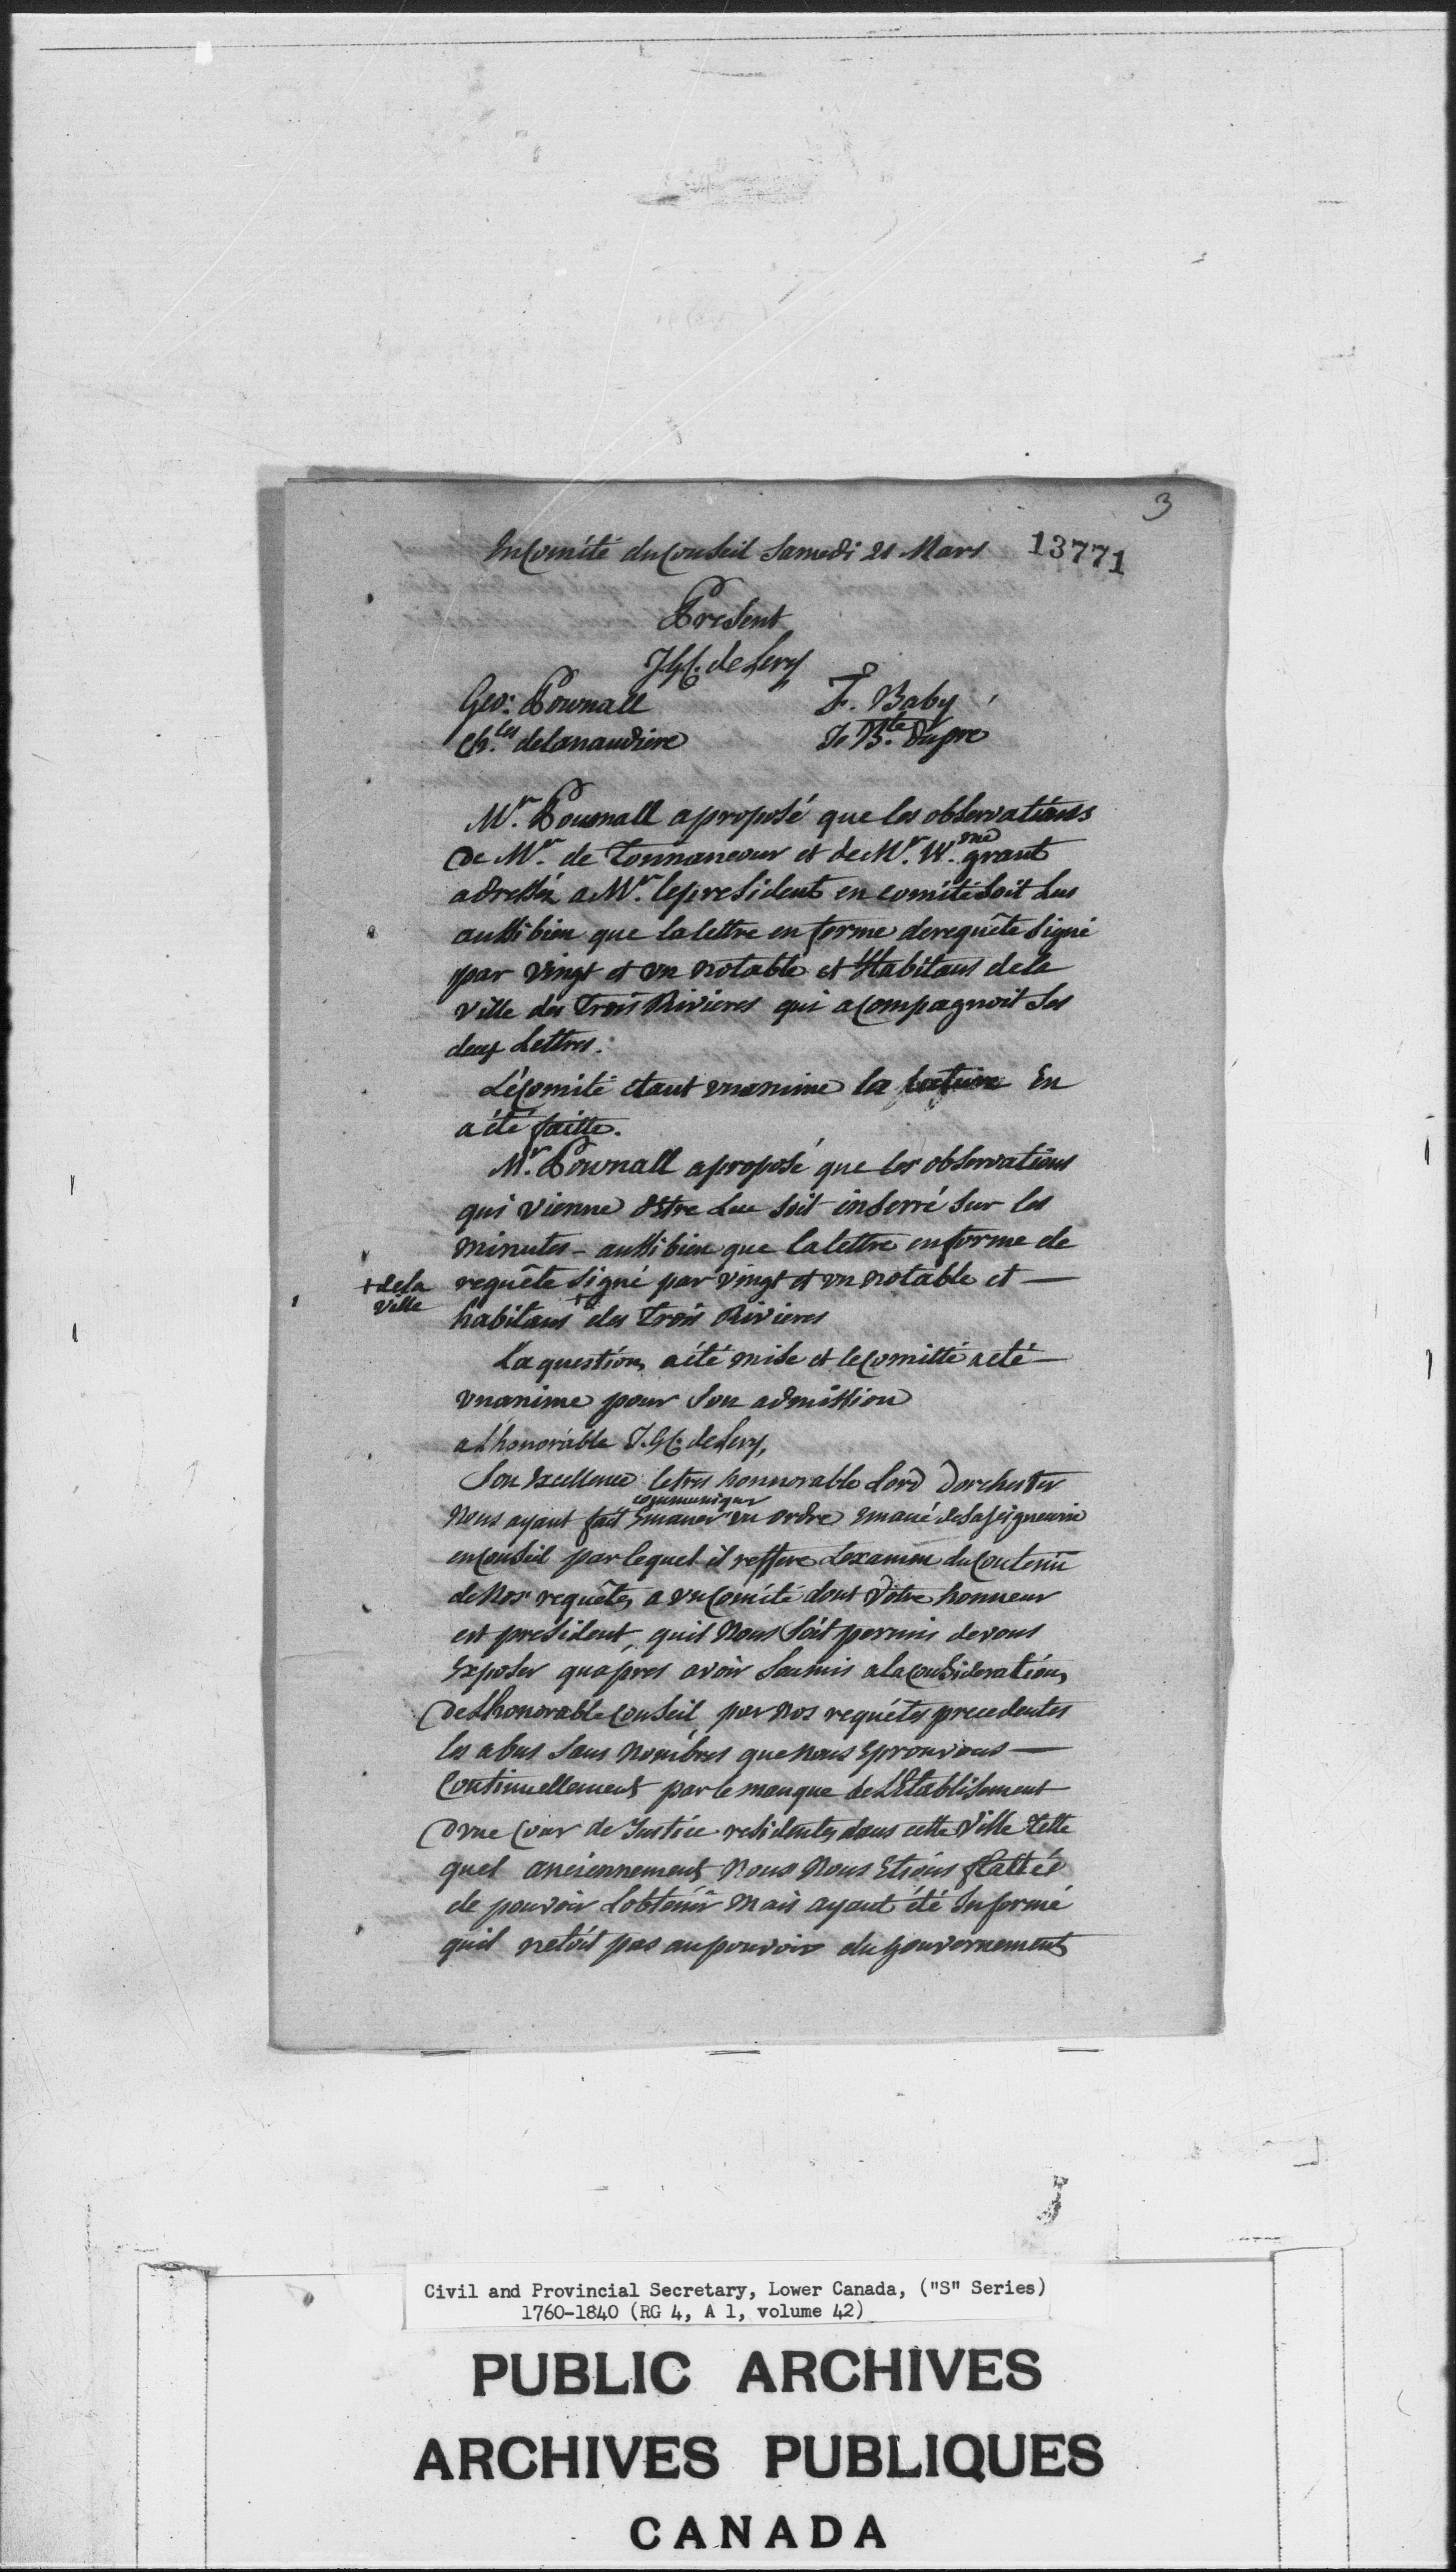 3
13771
En Comité du Conseil Samedi 21 Mars
Present
J.G.C. de Lery
Geo: Pownall F. Baby
Ch.les delanaudiere Je B.te Dupre
Mr. Pownall aproposé que les observations
De Mr. de Tonnancour et de Mr. W.me grant
adressée a Mr. lepresident en comité Soit Lus
aussi bien que la lettre en forme derequête Signé
par Vingt et un notable et Habitans dela
Ville des Trois Rivieres qui acompagnoit Les
deux Lettres.
Le Comité étant unanime la lecture En
a été faitte.
Mr. Pownall aproposé que les observations
qui vienne Estre Lue Soit inserré Sur les
minutes - aussi bien que la lettre enforme de
requête Signé par vingt et un notable et —
+ dela
Ville
habitans + des Trois Rivieres
La question a été mise et le Comitté a eté —
unanime pour Son admission
a L'honorable J.G.C. deLery,
Son Excellence letres honnorable Lord Dorchester
communiquer
Nous ayant fait Emaner un ordre Emané de Sa Seigneurie
en Conseil par lequel il reffere Lexamen du Contenu
de Nos requêtes a un Comité dont Votre honneur
est president, quil Nous Soit permis devous
Exposer quapres avoir Soumis a la Consideration
De Lhonorable Conseil par Nos requêtes precedentes
les abus Sans Nombres que Nous Eprouvons —
Continuellement par le manque de LEtablisement
Dune Cour de Justice residente dans cette Ville telle
quel anciennement Nous Nous Etions flattés
de pouvoir Lobtenir mais ayant été Informé
quil netoit pas au pouvoir du gouvernement
Civil and Provincial Secretary, Lower Canada, ("S" Series)
1760-1840 (RG 4, A 1, volume 42)
PUBLIC ARCHIVES
ARCHIVES PUBLIQUES
CANADA